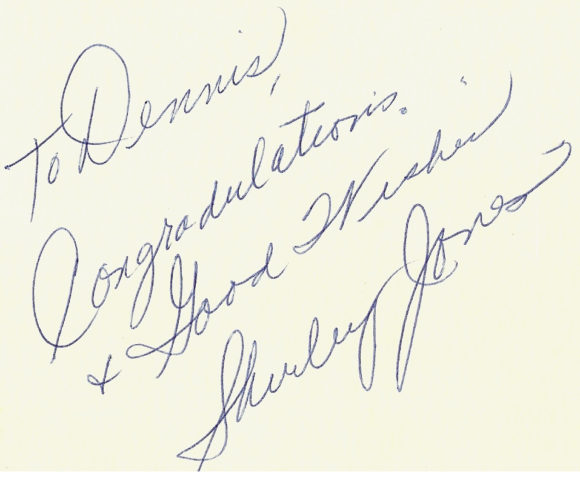 To Dennis,
Congradulations.
+ Good Wishes
Shirley Jones